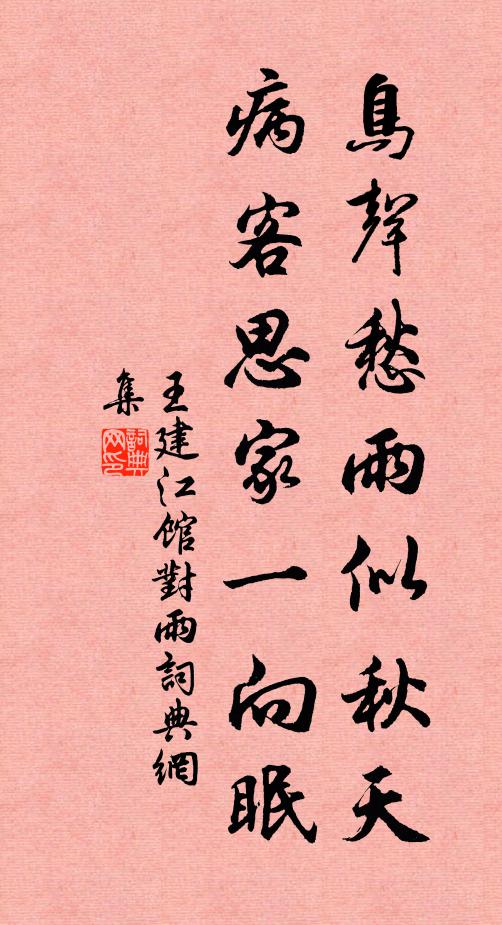 鳥聲愁雨似秋天
病客思家一向眠
王建江館對雨詞典網
集
詞典网印